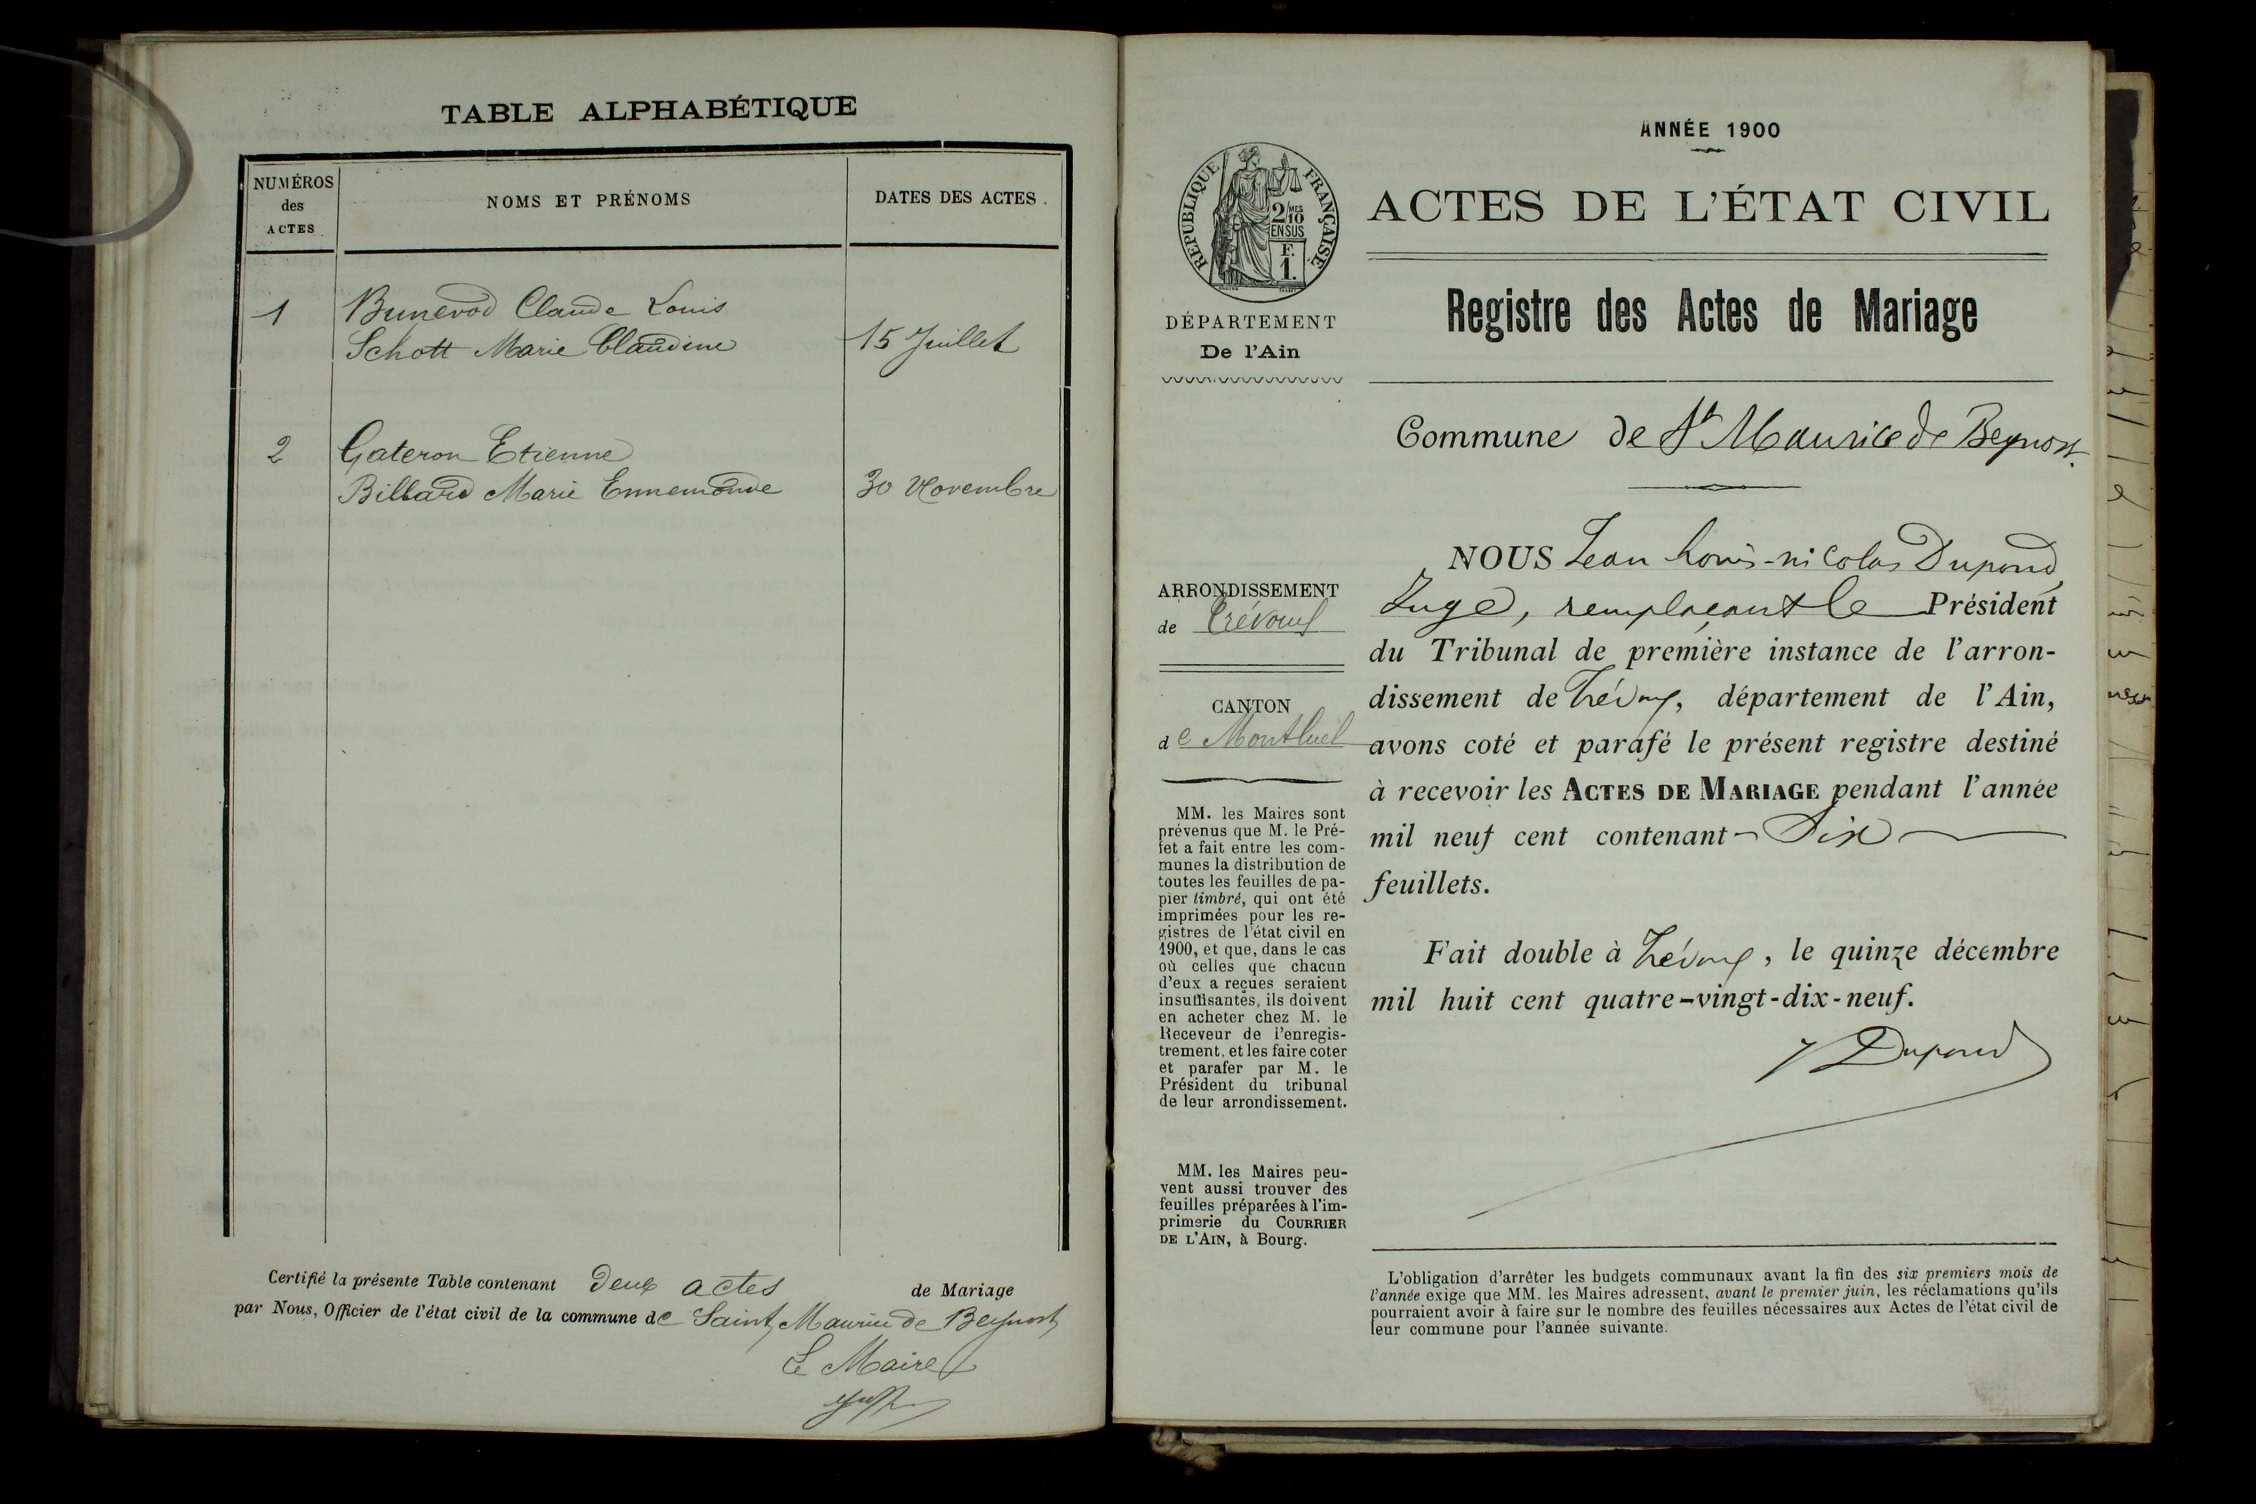 TABLE ALPHABÉTIQUE
NUMÉROS
des
ACTES
NOMS ET PRÉNOMS
DATES DES ACTES.
1
Bunevod Claude Louis
Schott Marie Claudine
15 Juillet
2
Gateron Etienne
Billard Marie Ennemonde
30 Novembre
Certifié la présente Table contenant Deux actes de Mariage
par Nous, Officier de l'état civil de la commune de Saint Maurice de Beynost
Le Maire
ANNÉE 1900
RÉPUBLIQUE FRANÇAISE
2/10 MES
EN SUS
F.
1.
ACTES DE L'ÉTAT CIVIL
DÉPARTEMENT
De l'Ain
Registre des Actes de Mariage
Commune de St Maurice de Beynost.
ARRONDISSEMENT
de Trévoux
CANTON
de Montluel
MM. les Maires sont
prévenus que M. le Pré-
fet a fait entre les com-
munes la distribution de
toutes les feuilles de pa-
pier timbré, qui ont été
imprimées pour les re-
gistres de l'état civil en
1900, et que, dans le cas
où celles que chacun
d'eux a reçues seraient
insuffisantes, ils doivent
en acheter chez M. le
Receveur de l'enregis-
trement, et les faire coter
et parafer par M. le
Président du tribunal
de leur arrondissement.
MM. les Maires peu-
vent aussi trouver des
feuilles préparées à l'im-
primerie du COURRIER
DE L'AIN, à Bourg.
NOUS Jean Louis-nicolas Dupond,
Juge, remplaçant le Président
du Tribunal de première instance de l'arron-
dissement de Trévoux, département de l'Ain,
avons coté et parafé le présent registre destiné
à recevoir les ACTES DE MARIAGE pendant l'année
mil neuf cent contenant - Six
feuillets.
Fait double à Trévoux, le quinze décembre
mil huit cent quatre-vingt-dix-neuf.
Dupond
L'obligation d'arrêter les budgets communaux avant la fin des six premiers mois de
l'année exige que MM. les Maires adressent, avant le premier juin, les réclamations qu'ils
pourraient avoir à faire sur le nombre des feuilles nécessaires aux Actes de l'état civil de
leur commune pour l'année suivante.